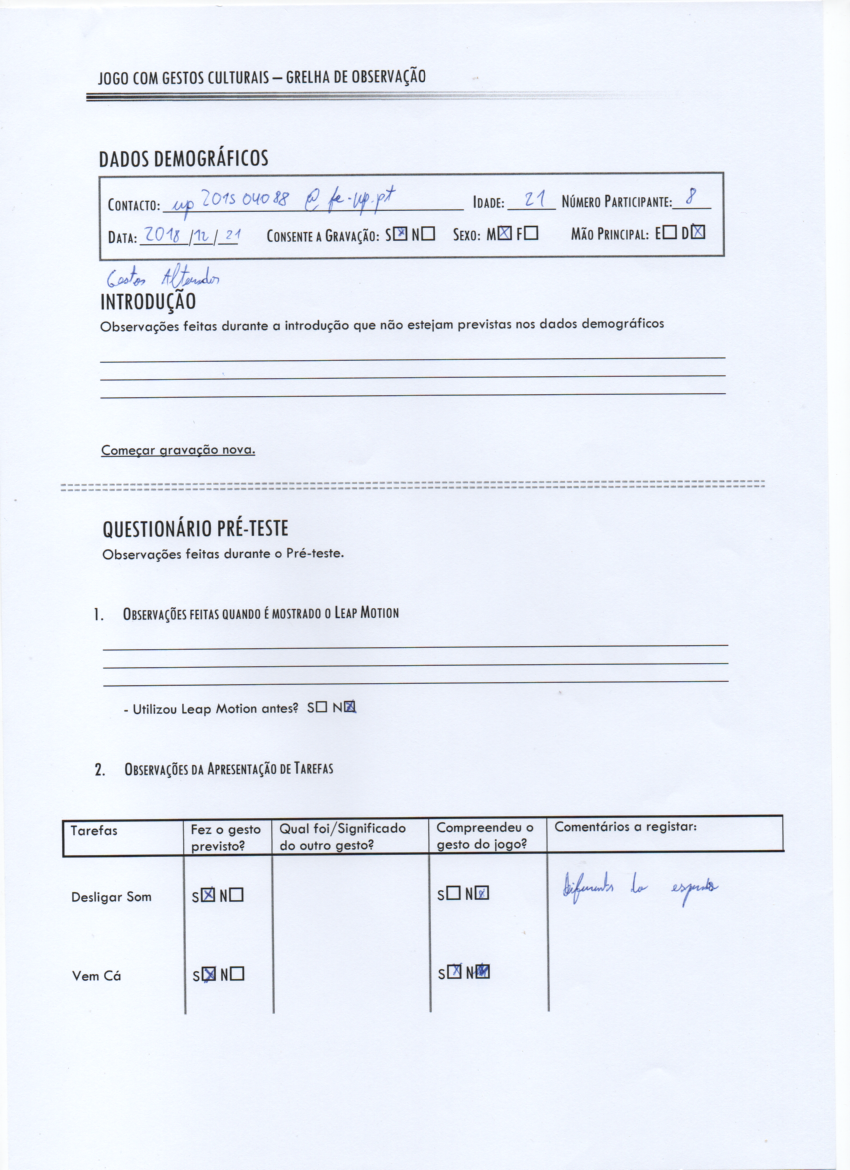 JOGO COM GESTOS CULTURAIS – GRELHA DE OBSERVAÇÃO
DADOS DEMOGRÁFICOS
CONTACTO: up 201504088 @ fe.up.pt IDADE: 21 NÚMERO PARTICIPANTE: 8
DATA: 2018/12/21 CONSENTE A GRAVAÇÃO: S☒ N☐ SEXO: M☒ F☐ MÃO PRINCIPAL: E☐ D☒
Gestos Alterados
INTRODUÇÃO
Observações feitas durante a introdução que não estejam previstas nos dados demográficos
Começar gravação nova.
QUESTIONÁRIO PRÉ-TESTE
Observações feitas durante o Pré-teste.
1. OBSERVAÇÕES FEITAS QUANDO É MOSTRADO O LEAP MOTION
- Utilizou Leap Motion antes? S☐ N☒
2. OBSERVAÇÕES DA APRESENTAÇÃO DE TAREFAS
Tarefas Fez o gesto previsto? Qual foi/Significado do outro gesto? Compreendeu o gesto do jogo? Comentários a registar:
Desligar Som S☒ N☐ S☐ N☒ Diferente do esperado
Vem Cá S☒ N☐ S☒ N☒